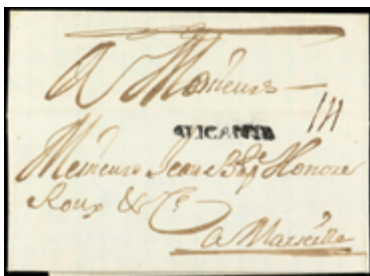 A Messieurs
ALICANTE
Messieurs Jean Bte Honoré
Roux & Cie
a Marseille